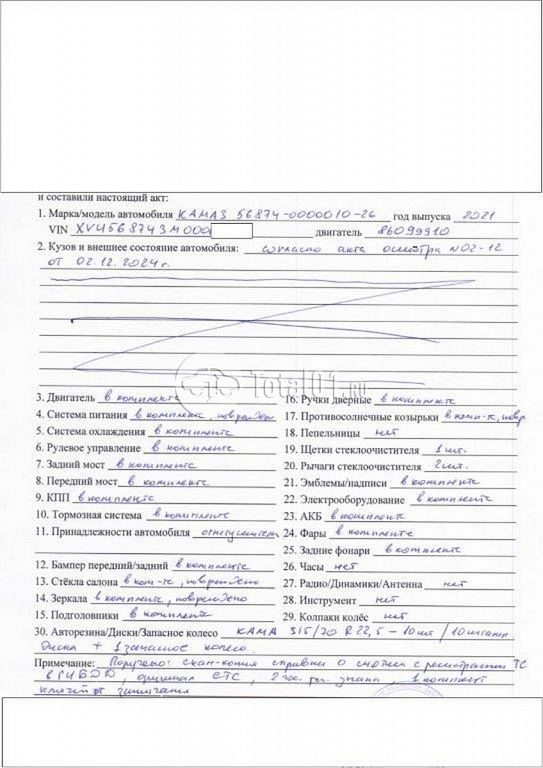 и составили настоящий акт:
1. Марка/модель автомобиля КАМАЗ 56874-0000010-26 год выпуска 2021
VIN XVU568743M000 двигатель 86099910
2. Кузов и внешнее состояние автомобиля: согласно акта осмотра N02-12
от 02.12.2024г.
Total01.RU
3. Двигатель в комплекте
16. Ручки дверные в комплекте
4. Система питания в комплекте, поврежден
17. Противосолнечные козырьки в комп-те, повр
5. Система охлаждения в комплекте
18. Пепельницы нет
6. Рулевое управление в комплекте
19. Щетки стеклоочистителя 1шт.
7. Задний мост в комплекте
20. Рычаги стеклоочистителя 2шт.
8. Передний мост в комплекте
21. Эмблемы/надписи в комплекте
9. КПП в комплекте
22. Электрооборудование в комплекте
10. Тормозная система в комплекте
23. АКБ в комплекте
11. Принадлежности автомобиля огнетушитель
24. Фары в комплекте
25. Задние фонари в комплекте
12. Бампер передний/задний в комплекте
26. Часы нет
13. Стёкла салона в ком-те, повреждено
27. Радио/Динамики/Антенна нет
14. Зеркала в комплекте, повреждено
28. Инструмент нет
15. Подголовники в комплекте
29. Колпаки колёс нет
30. Авторезина/Диски/Запасное колесо КАМА 315/70 R22,5 - 10шт / 10штамп.
Диски + 1 запасное колесо.
Примечание: Поручено: скан-копия справки о снятии с регистрации ТС
в ГИБДД, оригинал СТС, 2 гос. рег. знака, 1 комплект
ключей от зажигания